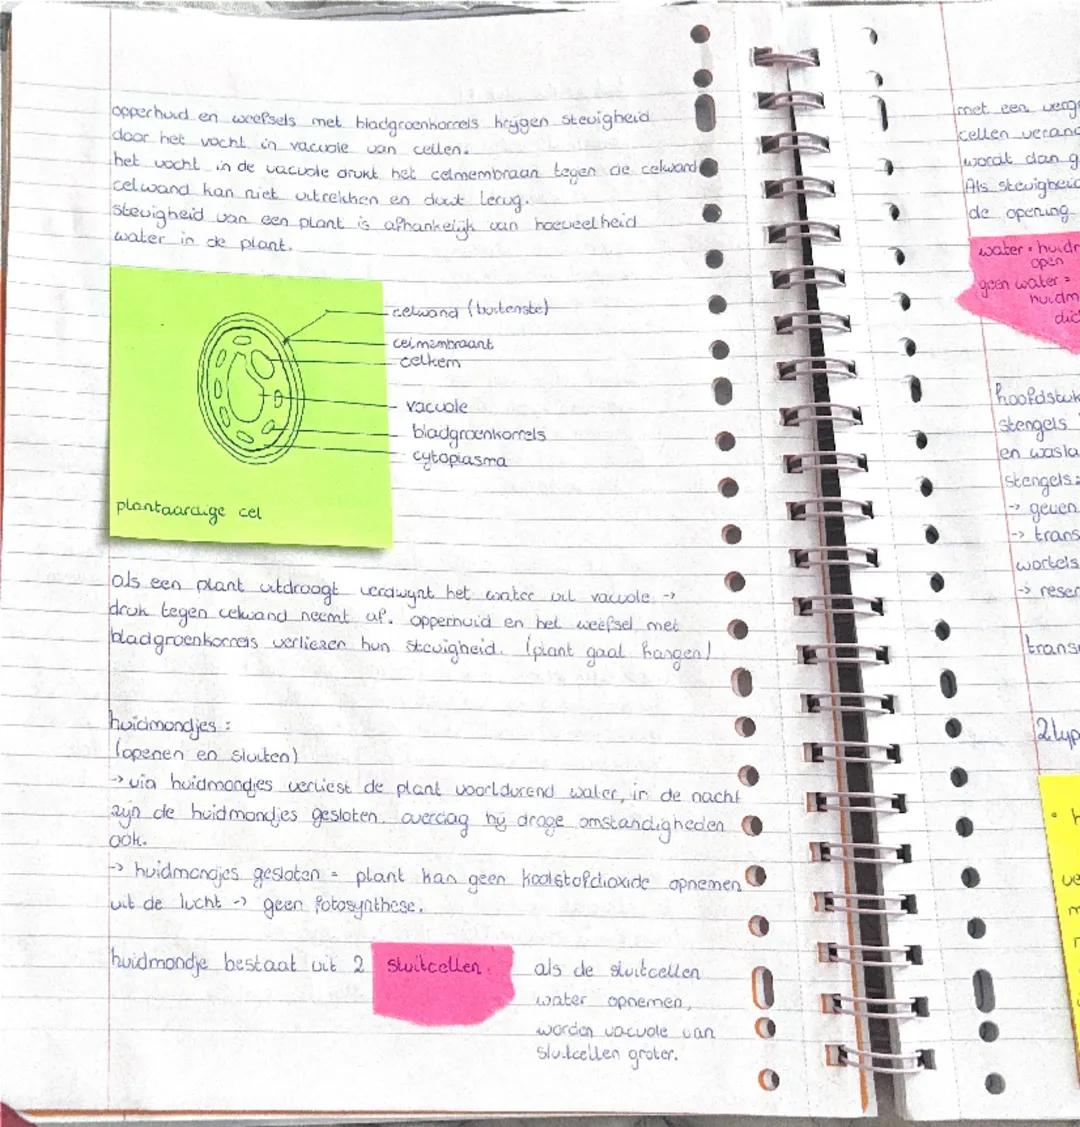 opperhuid en weefsels met bladgroenkorrels krijgen stevigheid
door het vocht in vacuole van cellen.
het vocht in de vacuole drukt het celmembraan tegen de celwand
celwand kan niet uitrekken en duwt terug.
Stevigheid van een plant is afhankelijk van hoeveelheid
water in de plant.
celwand (buitenste)
celmembraant
celkern
vacuole
bladgroenkorrels
cytoplasma
plantaardige cel
als een plant uitdroogt verdwijnt het water uit vacuole ->
druk tegen celwand neemt af. opperhuid en het weefsel met
bladgroenkorrels verliezen hun stevigheid. (plant gaat hangen)
huidmondjes :
(openen en sluiten)
-> via huidmondjes verliest de plant voortdurend water, in de nacht
zijn de huidmondjes gesloten. overdag bij droge omstandigheden
ook.
-> huidmondjes gesloten = plant kan geen koolstofdioxide opnemen
uit de lucht -> geen fotosynthese.
huidmondje bestaat uit 2 sluitcellen.
als de sluitcellen
water opnemen,
worden vacuole van
sluitcellen groter.
met een
cellen
wordt dan
Als
de opening
water =
open
geen water =
stengels
en
stengels:
-> geven
wortels
2